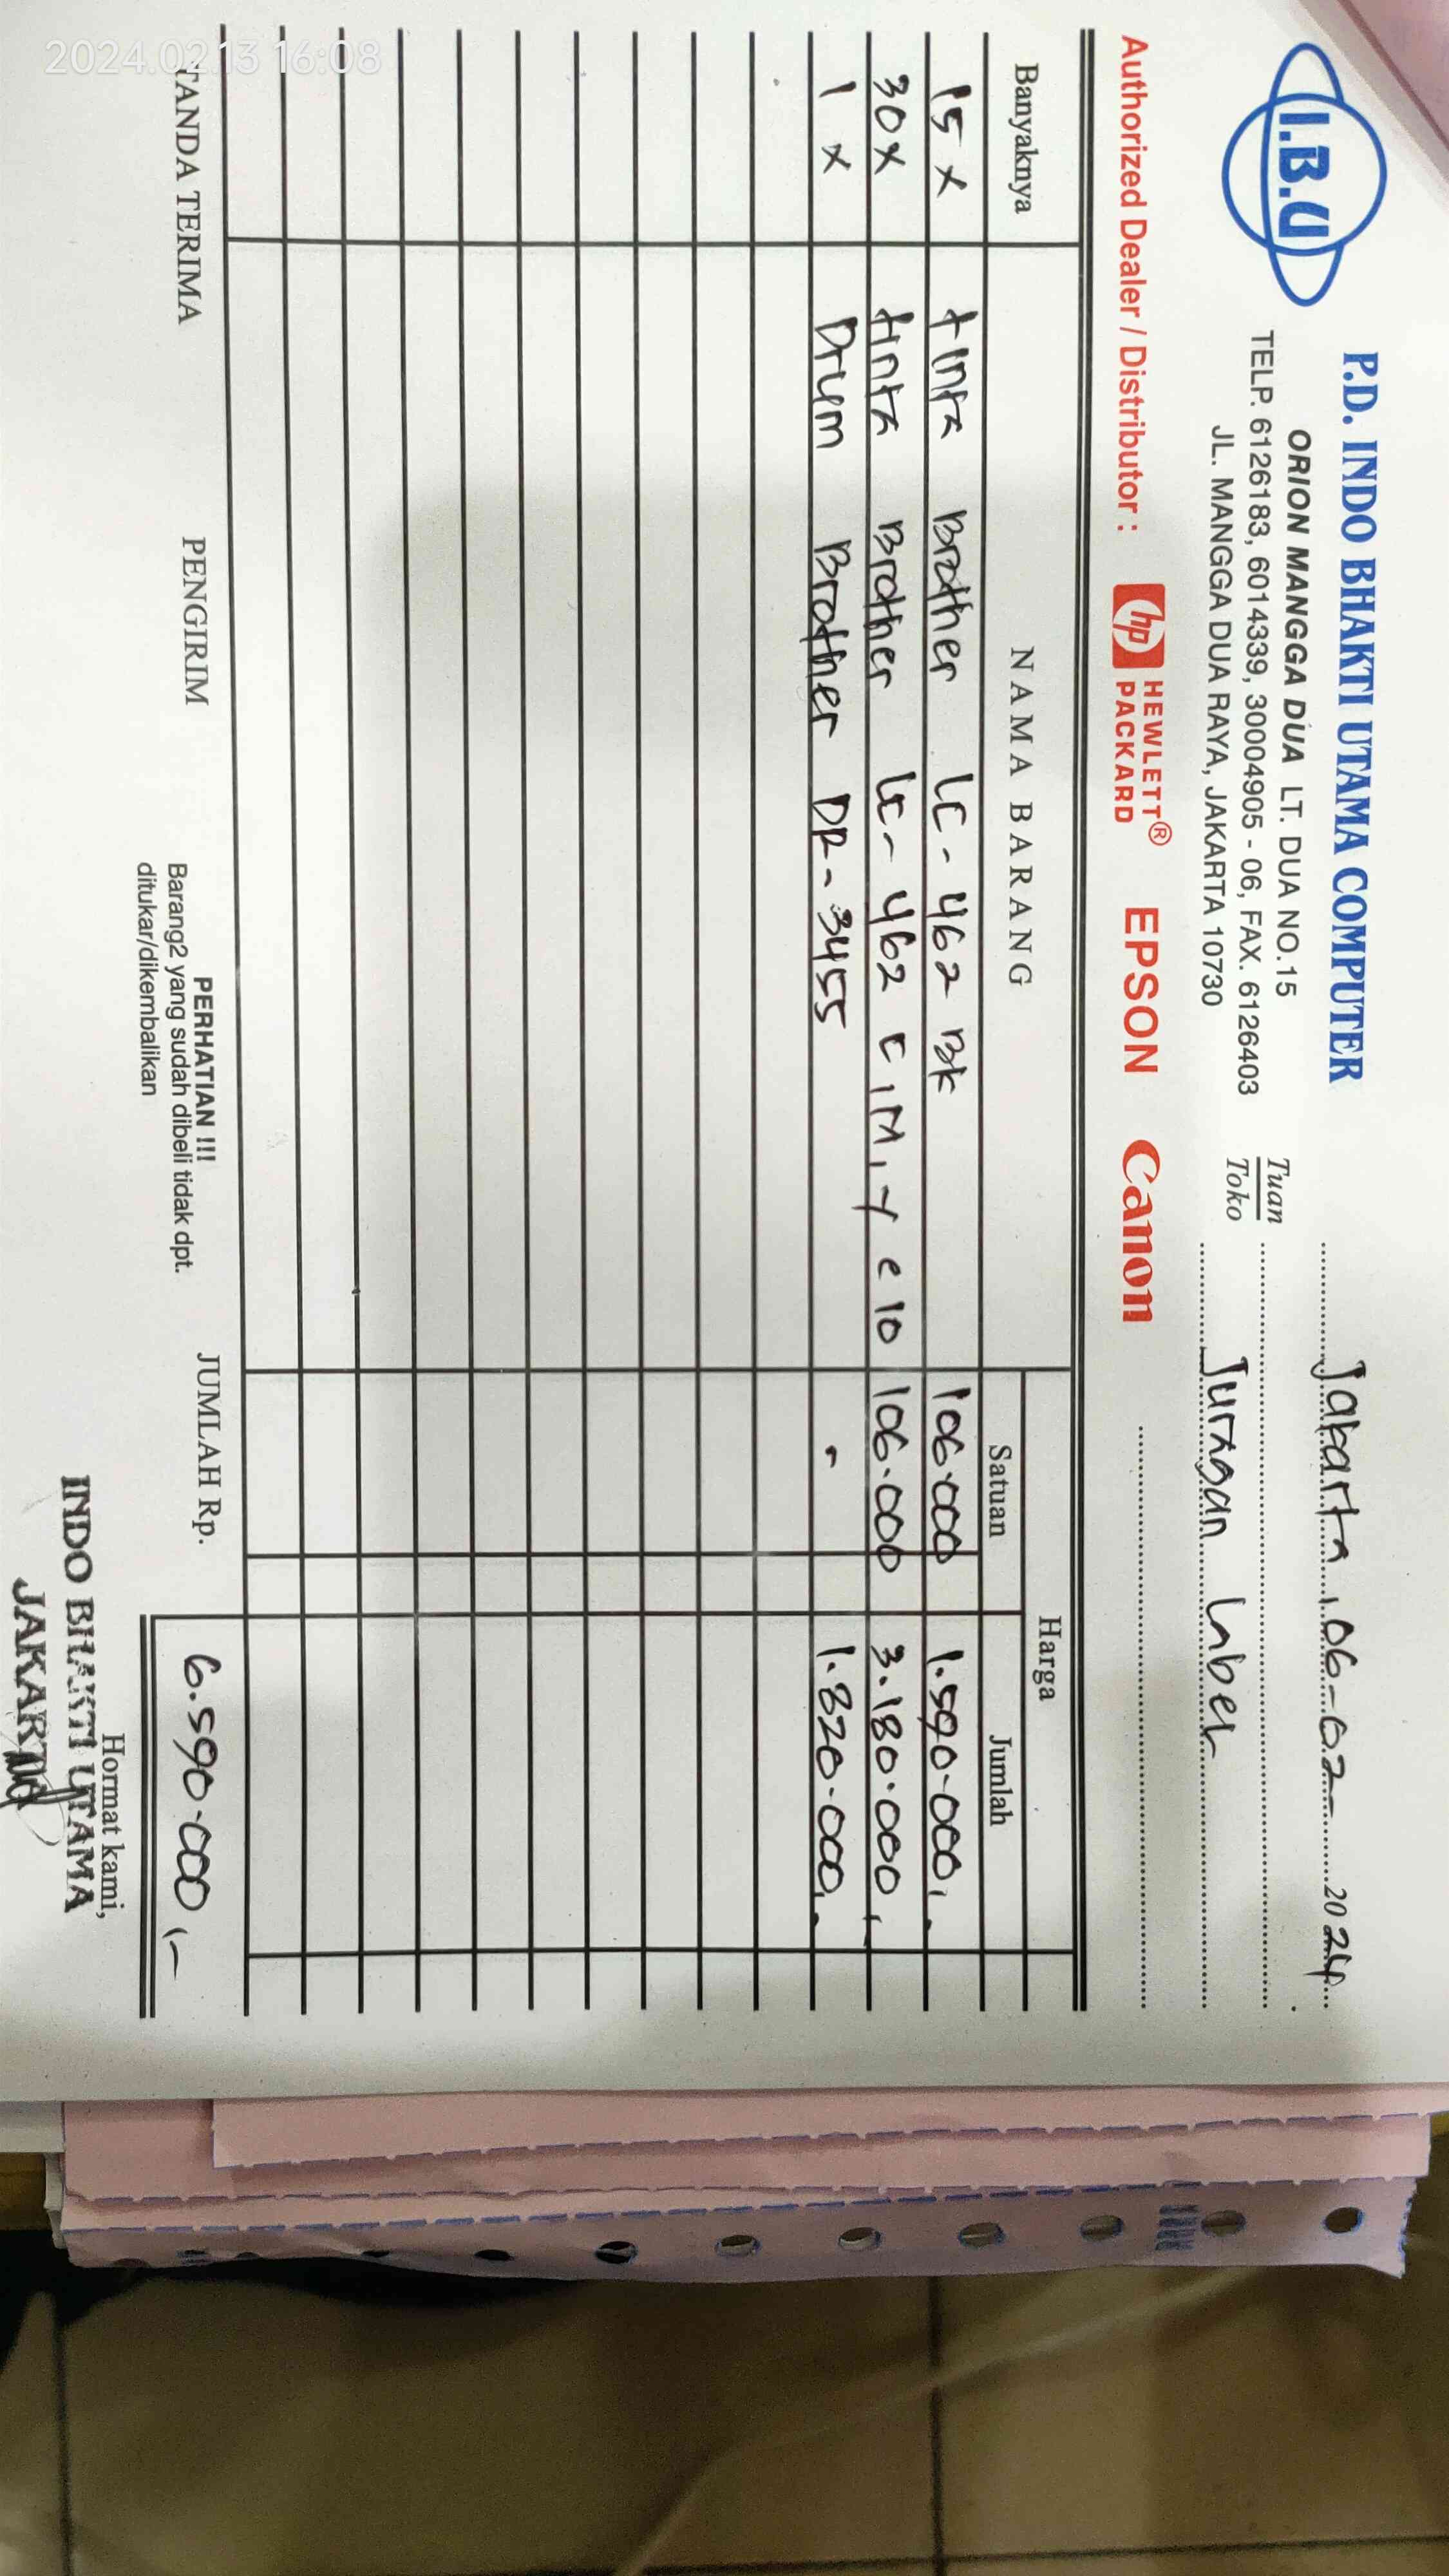 I.B.U
P.D. INDO BHAKTI UTAMA COMPUTER
ORION MANGGA DUA LT. DUA NO.15
TELP. 6126183, 6014339, 30004905 - 06, FAX. 6126403
JL. MANGGA DUA RAYA, JAKARTA 10730
Jakarta, 06-02- 2024
Tuan
Toko Juragan Label
Authorized Dealer / Distributor : hp HEWLETT® PACKARD EPSON Canon
Banyaknya NAMA BARANG Harga
Satuan Jumlah
15 x tinta Brother LC-462 BK 106.000 1.590.000,-
30 x tinta Brother LC-462 C, M, Y @ 10 106.000 3.180.000,-
1 x Drum Brother DR-3455 - 1.820.000,-
TANDA TERIMA PENGIRIM PERHATIAN !!! JUMLAH Rp. 6.590.000,-
Barang2 yang sudah dibeli tidak dpt.
ditukar/dikembalikan
Hormat kami,
INDO BHAKTI UTAMA
JAKARTA
2024.02.13 16:08